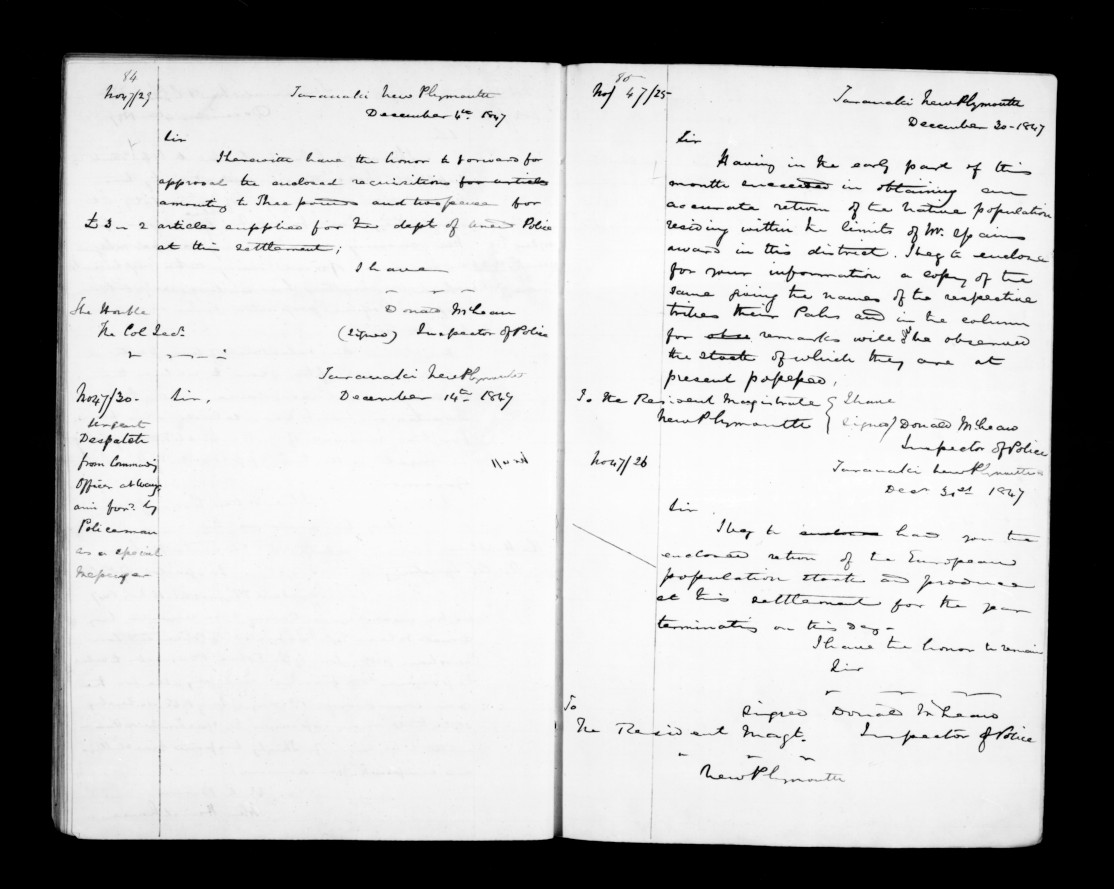 84
No 47/29
Taranaki New Plymouth
December 4th 1847
Sir
I herewith have the honor to forward for
approval the enclosed requisitions for articles
amounting to Three pounds and twopence for
£3 " 2 articles supplies for the dept of armed Police
at this settlement;
I have
Donald McLean
(Signed) Inspector of Police
The Honble
The Col Secy.
Taranaki New Plymouth
No 47/30- Sir, December 14th 1847
Urgent
Despatch
from Commandg
Officer at Wanga
nui forwd. by
Policeman
as a special
Messenger
85
No/ 47/25
Taranaki New Plymouth
December 30 - 1847
Sir
Having in the early part of this
month succeeded in obtaining an
accurate return of the Native population
residing within the limits of Mr. Spains
award in this district. I beg to enclose
for your information a copy of the
same giving the names of the respective
tribes their Pahs and in the column
for remarks will be observed
the stock of which they are at
present possessed.
To the Resident Magistrate { I have
New Plymouth { Signed/ Donald McLean
Inspector of Police
No 47/26
Taranaki New Plymouth
Decr 31st 1847
Sir
I beg to enclose hand you the
enclosed return of the European
population stock and produce
at this settlement for the year
terminating on this day-
I have the honor to remain
Sir
Signed Donald McLean
To
The Resident Magt. Inspector of Police
New Plymouth